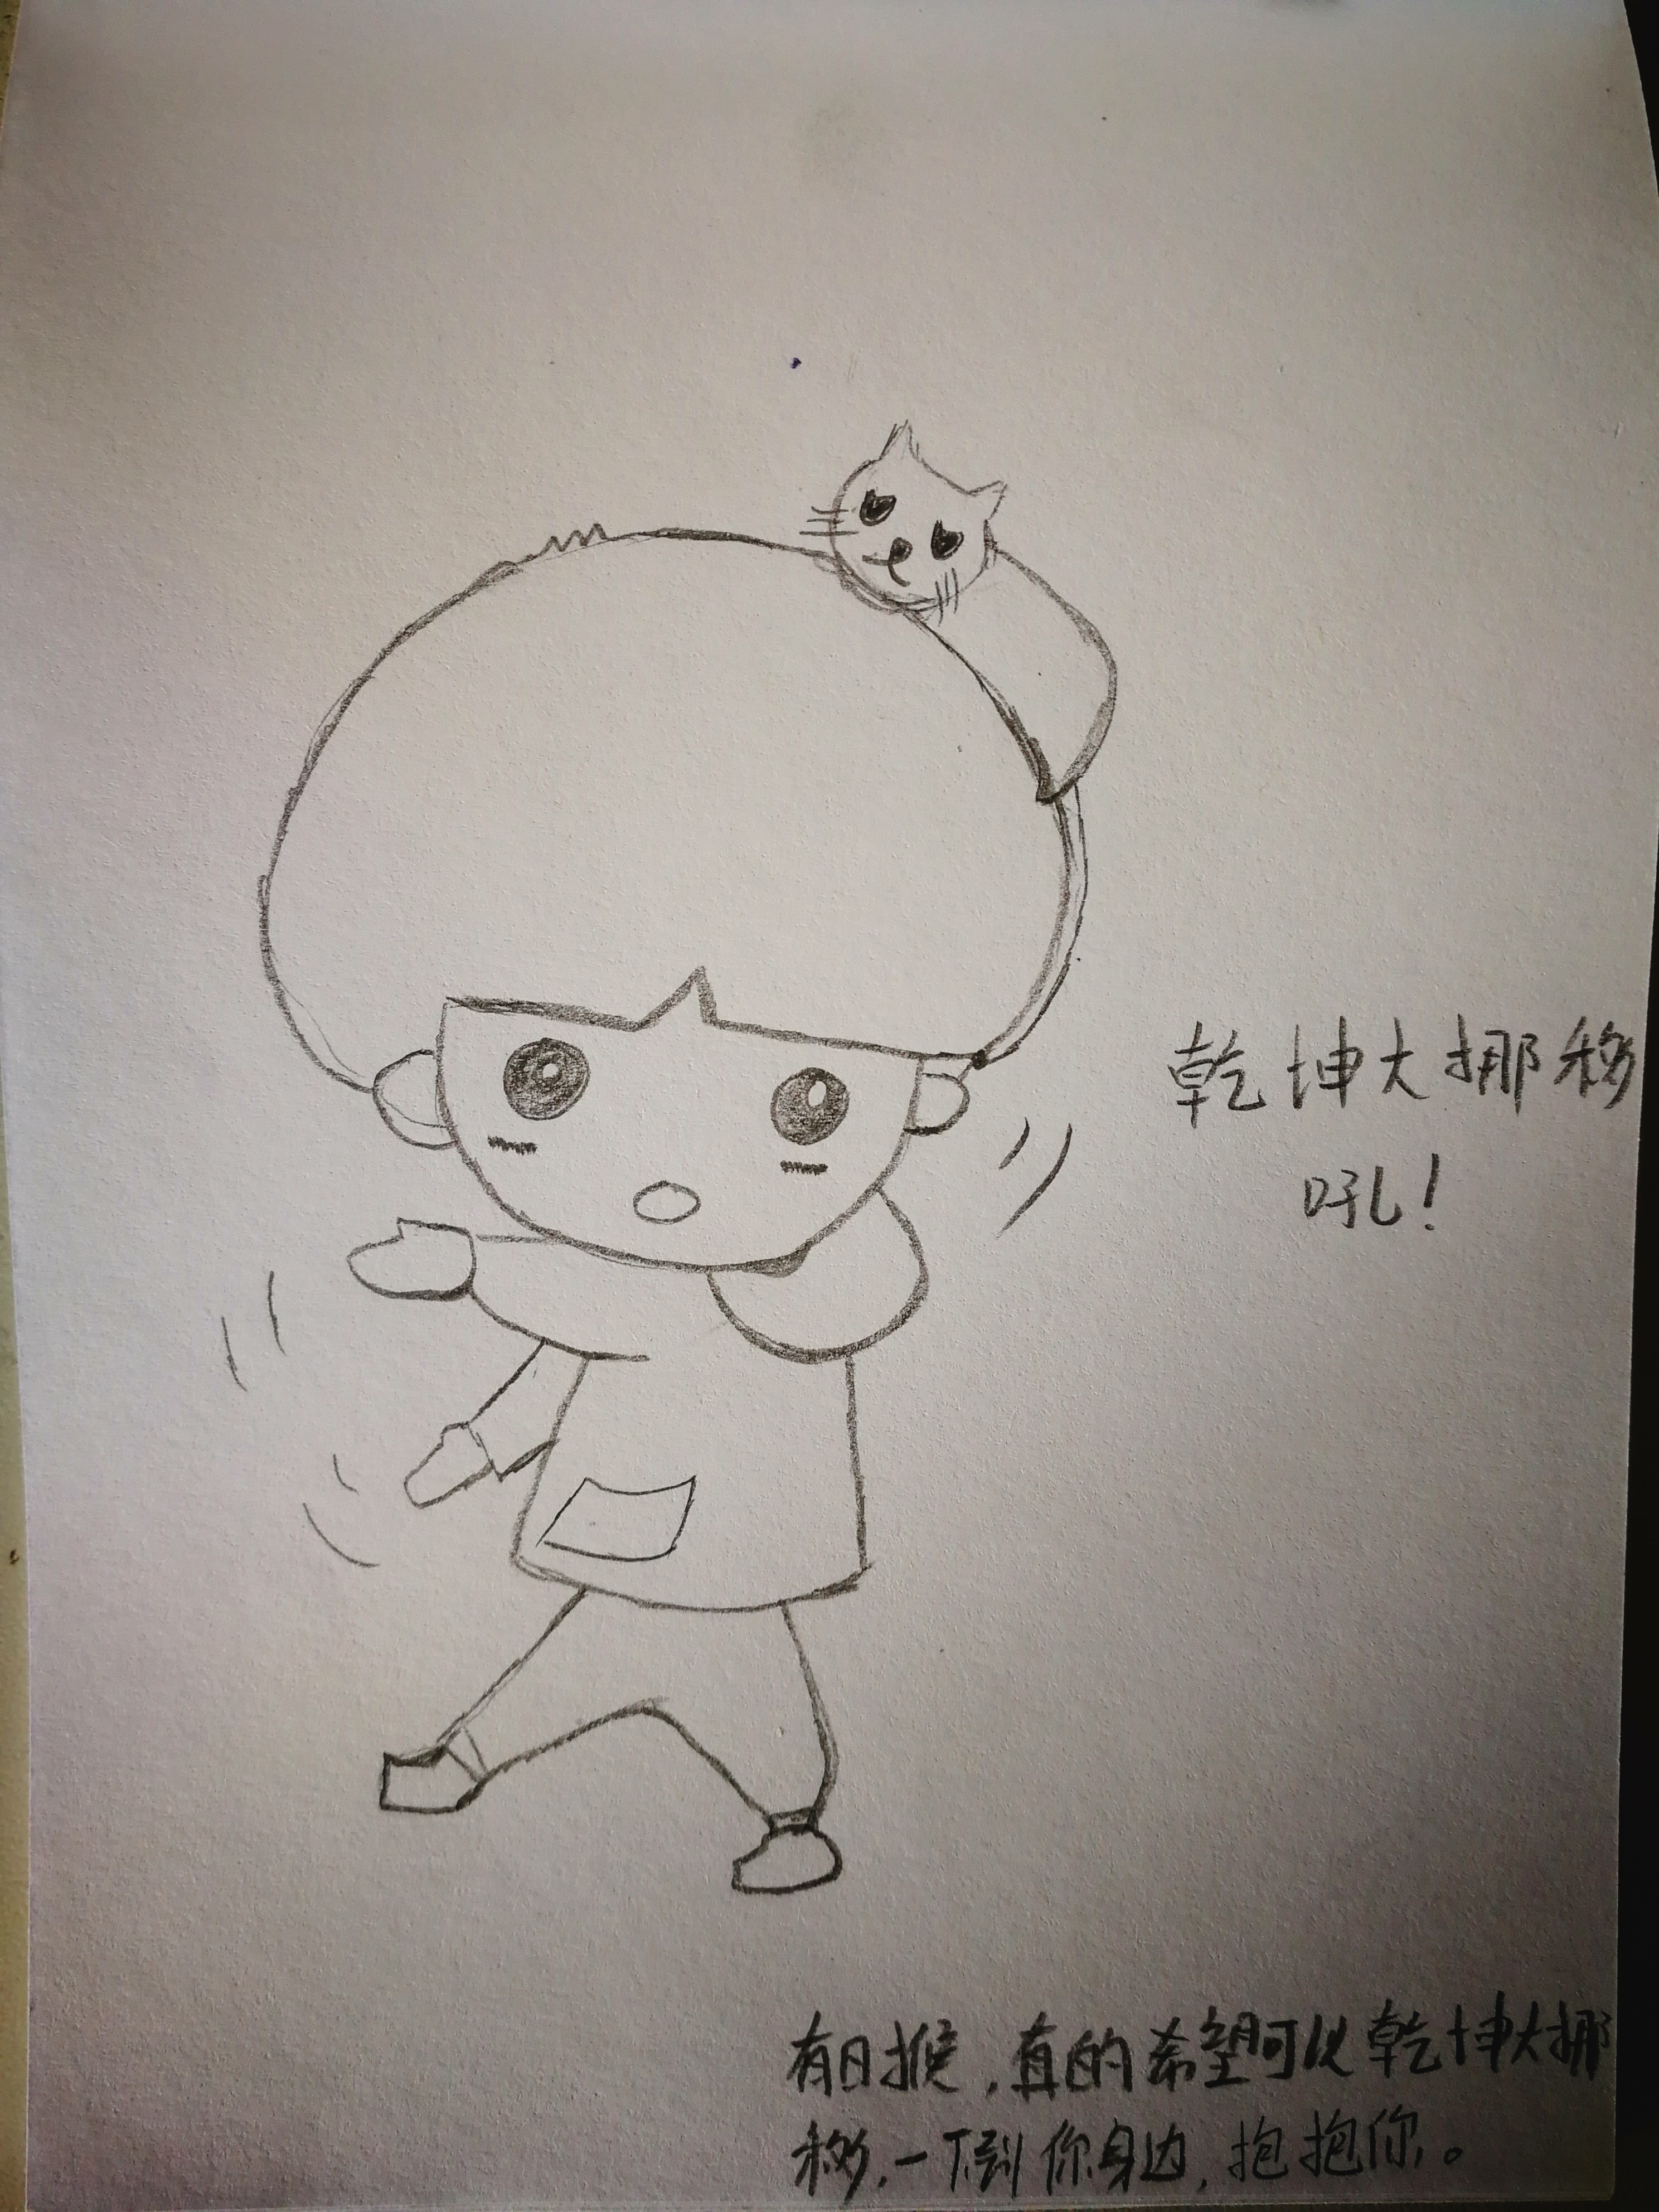 乾坤大挪移
吼！
有日猴，真的希望可以乾坤大挪
移，一下到你身边，抱抱你。